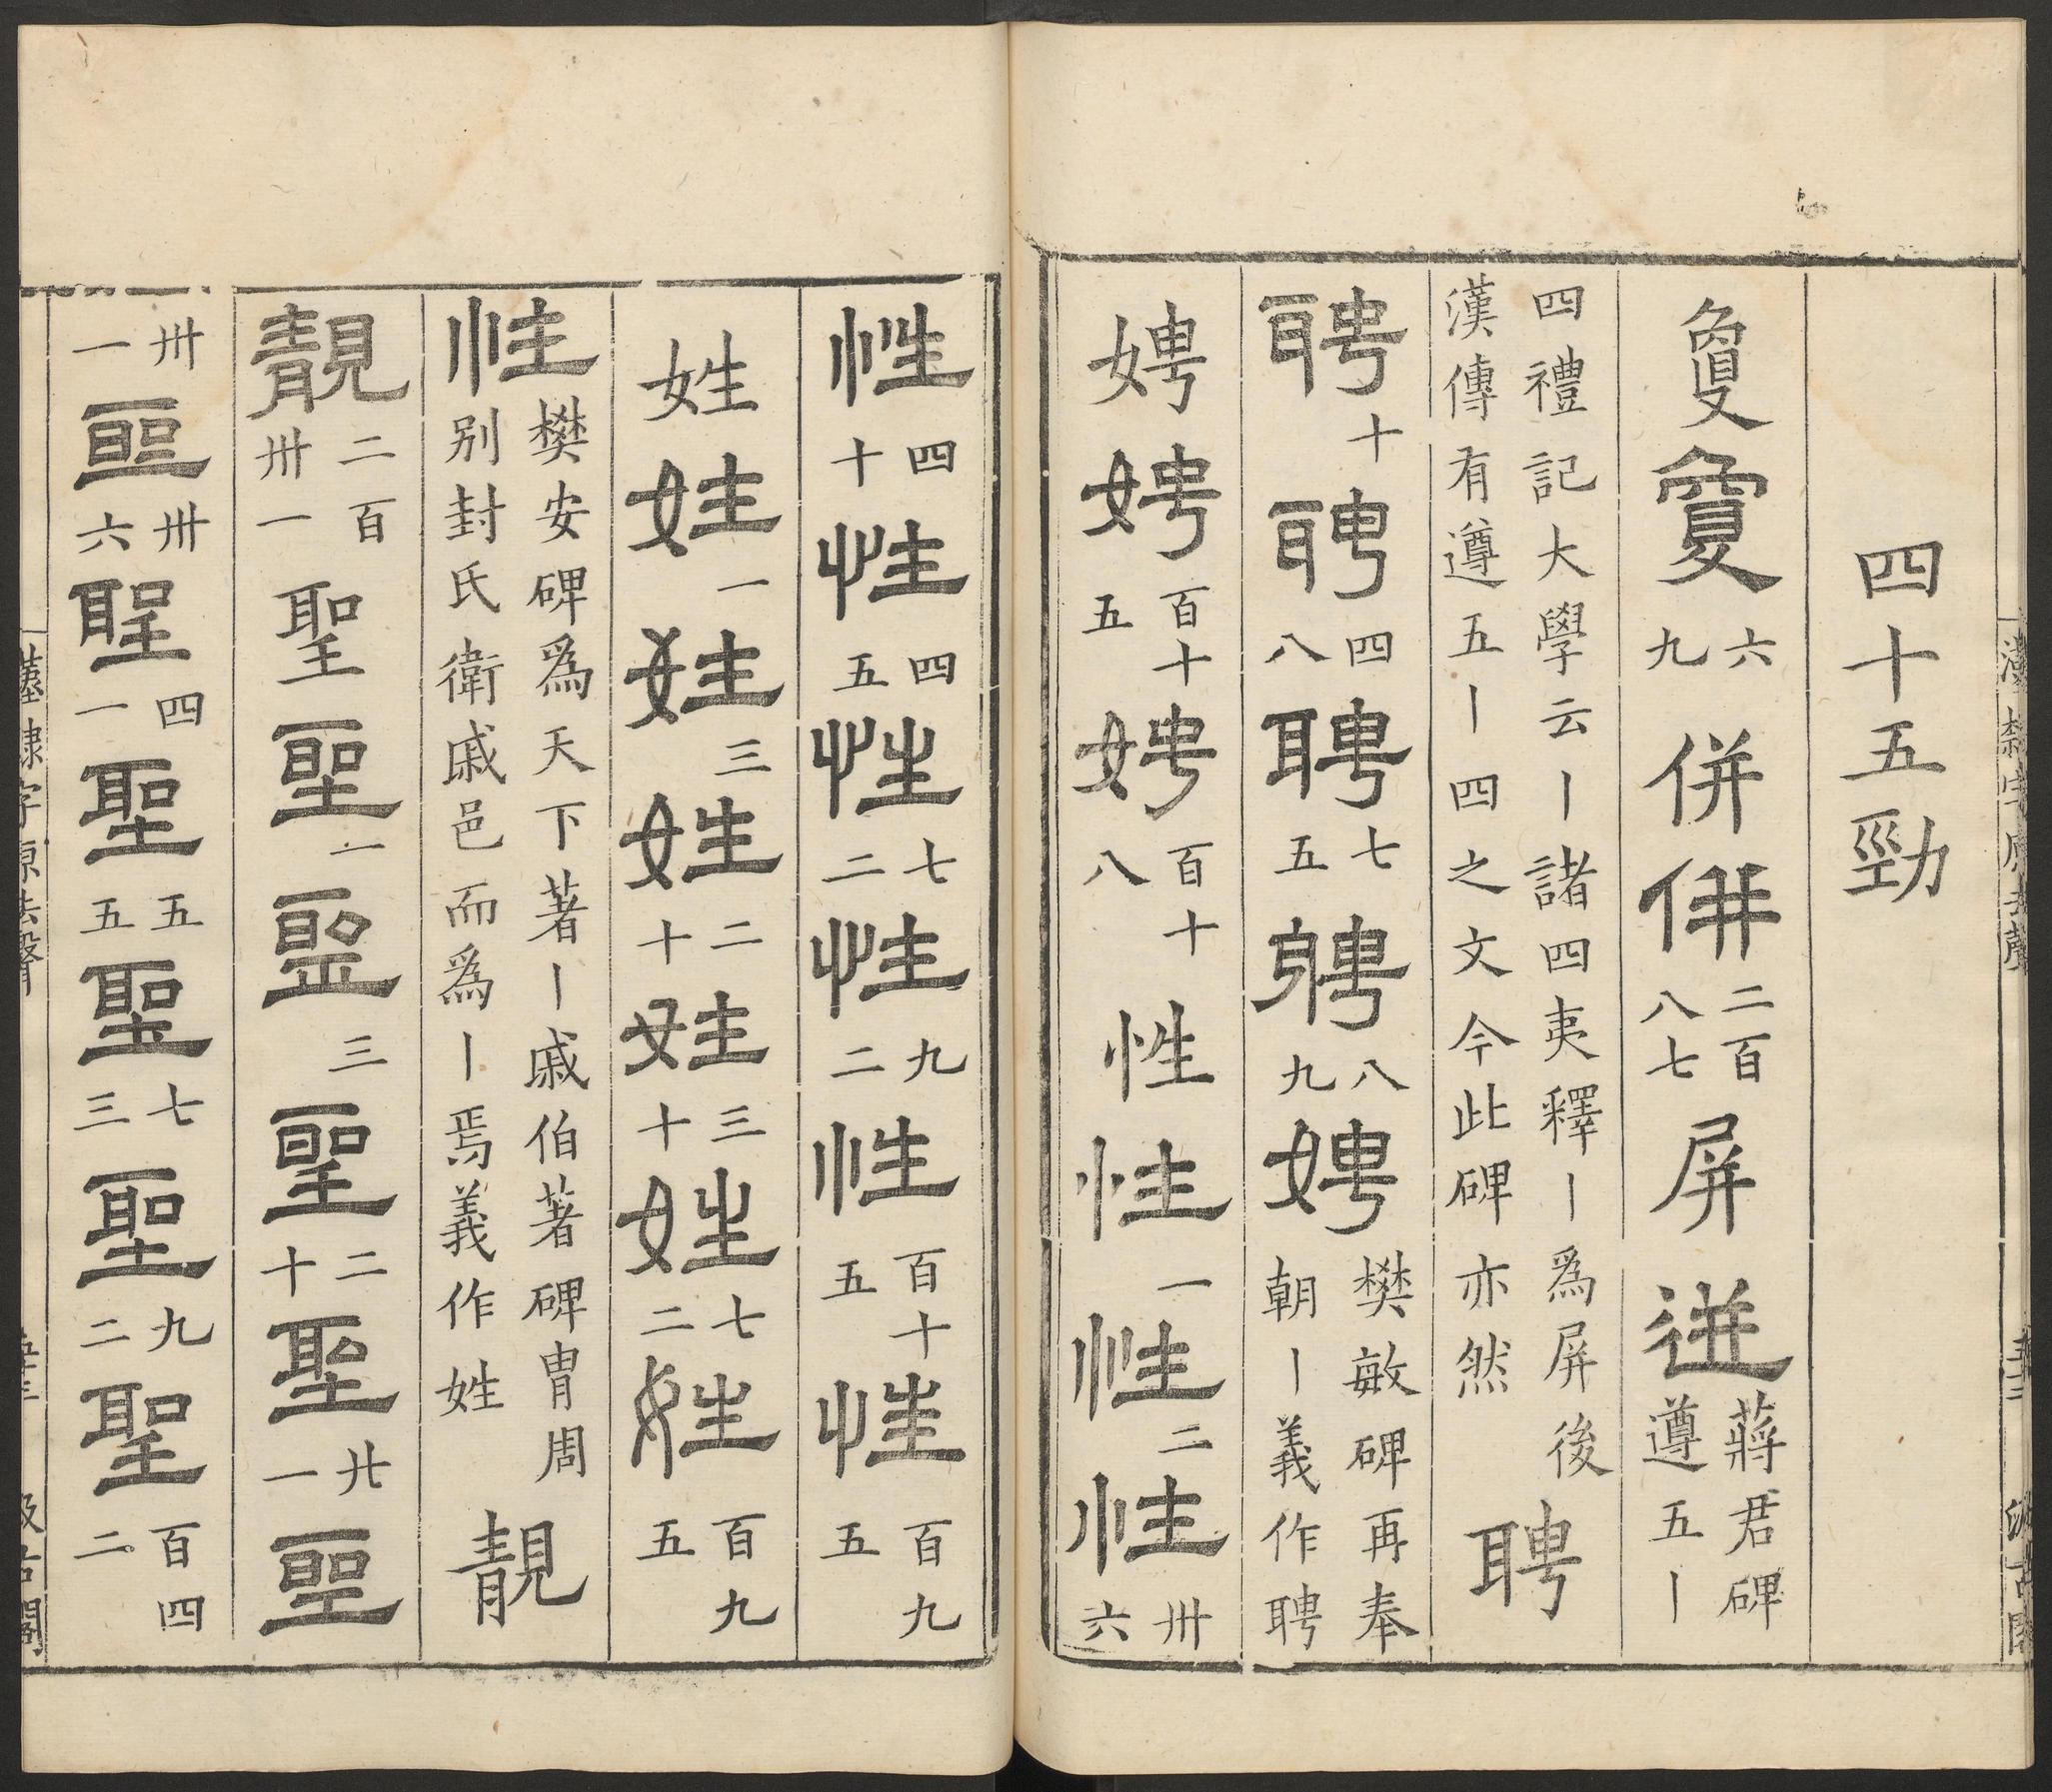 四十五勁
敻敻六九併併二百八七屏迸蔣君碑遵五丨
四禮記大學云丨諸四夷釋丨爲屏後漢傳有遵五丨四之文今此碑亦然聘
聘十聘四八聘七五聘八九娉樊敏碑再奉朝丨義作聘
娉娉百十五娉百十八性性一性二性卅六
性四十性四五性七二性九二性百十五性百九五
姓姓一姓三姓二十姓三十姓七二姓百九五
性樊安碑爲天下著丨戚伯著碑胄周别封氏衛戚邑而爲丨焉義作姓靚
靚二百卅一聖聖一聖三聖二十聖廿一聖
卅一聖卅六聖四一聖五五聖七三聖九二聖百四二
漢隸字原去聲 汲古閣